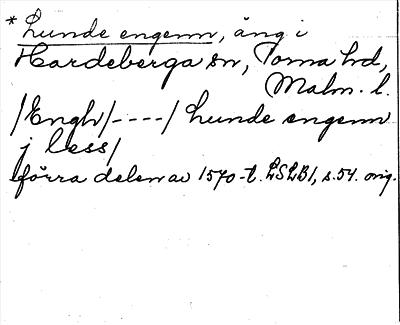 * Lunde engenn, äng i
Hardeberga sn, Torna hd,
Malm. l.
/Engh/----/ Lunde engenn
j less/
förra delen av 1570-t. LSLB1, s.54. orig.